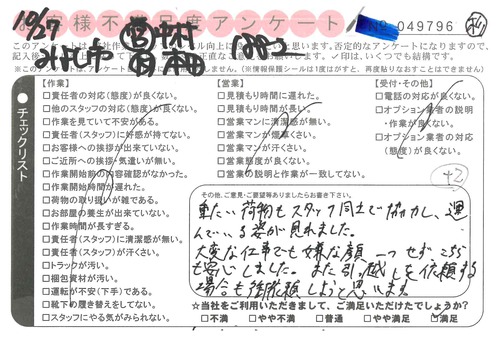 お客様不満足度アンケート
049796
10/27
【作業】
□責任者の対応(態度)が良くない。
□他のスタッフの対応(態度)が良くない。
□作業を見ていて不安がある。
□責任者(スタッフ)に好感が持てない。
□お客様への挨拶が出来ていない。
□ご近所への挨拶・気遣いが無い。
□作業開始前の内容確認がなかった。
□作業開始時間が遅れた。
□荷物の取り扱いが雑である。
□お部屋の養生が出来ていない。
□作業時間が長すぎる。
□責任者(スタッフ)に清潔感が無い。
□責任者(スタッフ)が汗くさい。
□トラックが汚い。
□梱包資材が汚い。
□運転が不安(下手)である。
□靴下の履き替えをしてない。
□スタッフにやる気がみられない。
【営業】
□見積もり時間に遅れた。
□見積もり時間が長い。
□営業マンに清潔感が無い。
□営業マンが煙草くさい。
□営業マンが汗くさい。
□営業態度が良くない。
□営業の説明と作業が一致してない。
【受付・その他】
□電話の対応が良くない。
□オプション業者の説明・作業が良くない。
□オプション業者の対応(態度)が良くない。
チェックリスト
その他、ご意見・ご要望等ありましたらお書き下さい。
重たい荷物もスタッフ同士で協力し、運
んでいる姿が見れました。
大変な仕事でも嫌な顔一つせず、こちら
も安心しました。また引っ越しを依頼する
場合も是非依頼しようと思います
☆当社をご利用いただきまして、ご満足いただけたでしょうか?
□不満 □やや不満 □普通 □やや満足 □満足